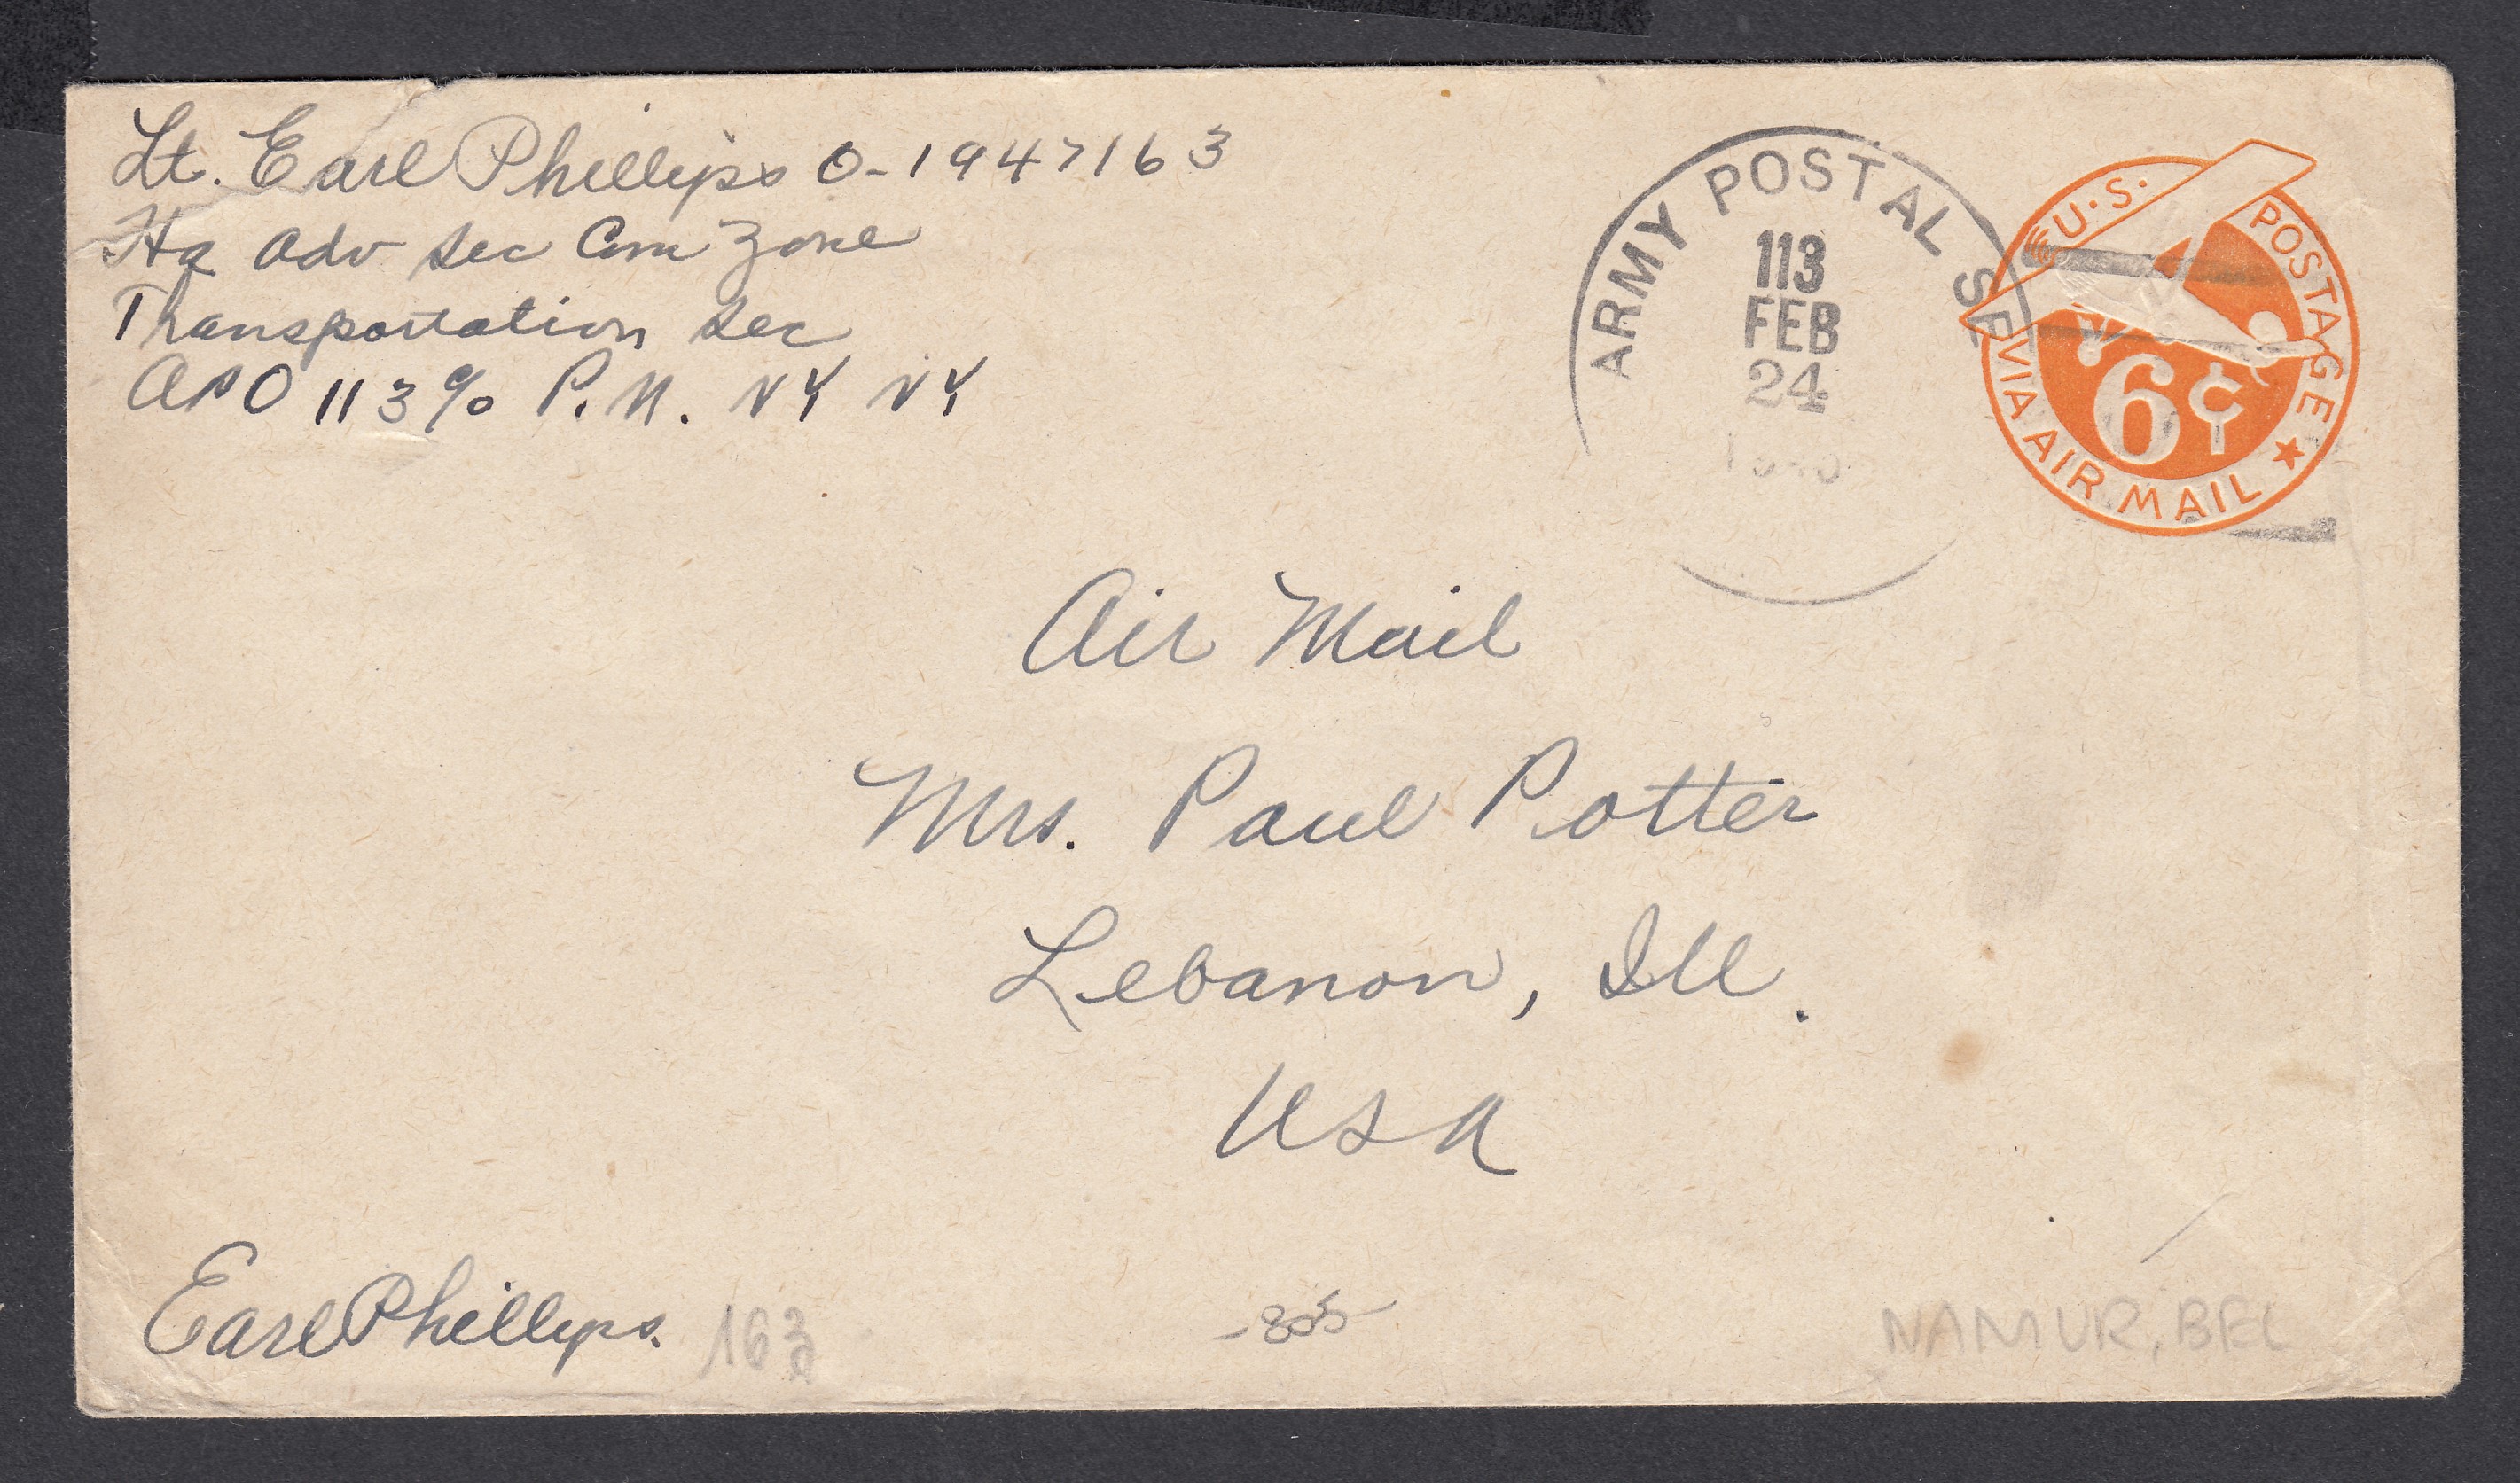 Lt. Earl Phillips O-1947163
Hq Adv Sec Com Zone
Transportation Sec
APO 113 c/o P.M. NY NY
ARMY POSTAL SE
113
FEB
24
U.S. POSTAGE
6¢
VIA AIR MAIL
Air Mail
Mrs. Paul Potter
Lebanon, Ill.
USA
Earl Phillips.
163
NAMUR, BEL